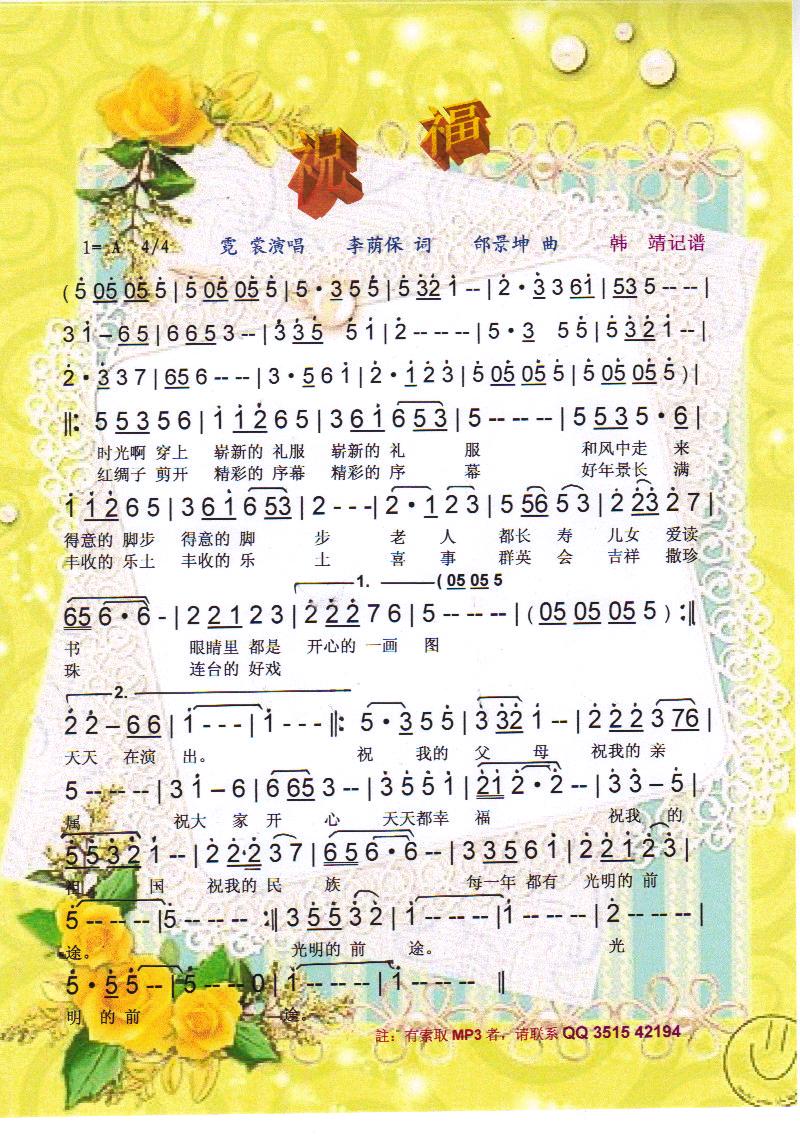 祝 福
1= A 4/4 霓 裳演唱 李荫保 词 邰景坤 曲 韩 靖记谱
( 5 05 05 5 | 5 05 05 5 | 5 · 3 5 5 | 5 32 1 -- | 2 · 3 3 61 | 53 5 -- -- |
3 1 – 6 5 | 6 6 5 3 -- | 3 3 5 5 1 | 2 -- -- -- | 5 · 3 5 5 | 5 3 2 1 -- |
2 · 3 3 7 | 65 6 -- -- | 3 · 5 6 1 | 2 · 1 2 3 | 5 05 05 5 | 5 05 05 5 ) |
‖: 5 5 3 5 6 | 1 1 2 6 5 | 3 6 1 6 5 3 | 5 -- -- -- | 5 5 3 5 · 6 |
时光啊 穿上 崭新的 礼服 崭新的 礼 服 和风中走 来
红绸子 剪开 精彩的 序幕 精彩的 序 幕 好年景长 满
1 1 2 6 5 | 3 6 1 6 53 | 2 - - - | 2 · 1 2 3 | 5 56 5 3 | 2 23 2 7 |
得意的 脚步 得意的 脚 步 老 人 都长 寿 儿女 爱读
丰收的 乐土 丰收的 乐 土 喜 事 群英 会 吉祥 撒珍
1. ( 05 05 5
65 6 · 6 - | 2 2 1 2 3 | 2 2 2 7 6 | 5 -- -- -- | ( 05 05 05 5 ) :‖
书 眼睛里 都是 开心的 一画 图
珠 连台的 好戏
2.
2 2 – 6 6 | 1 - - - | 1 - - - ‖: 5 · 3 5 5 | 3 32 1 -- | 2 2 2 3 76 |
天天 在演 出。 祝 我的 父 母 祝我的 亲
5 -- -- -- | 3 1 – 6 | 6 65 3 -- | 3 5 5 1 | 21 2 · 2 -- | 3 3 – 5 |
属 祝大 家 开 心 天天都幸 福 祝我 的
5 5 3 2 1 -- | 2 2 2 3 7 | 6 5 6 · 6 -- | 3 3 5 6 1 | 2 2 1 2 3 |
祖 国 祝我的 民 族 每一年 都有 光明的 前
5 -- -- -- | 5 -- -- -- :‖ 3 5 5 3 2 | 1 -- -- -- | 1 -- -- -- | 2 -- -- -- |
途。 光明的 前 途。 光
5 · 5 5 -- | 5 -- -- 0 | 1 -- -- -- | 1 -- -- -- ‖
明 的 前 途。
註：有索取 MP3 者，请联系 QQ 3515 42194